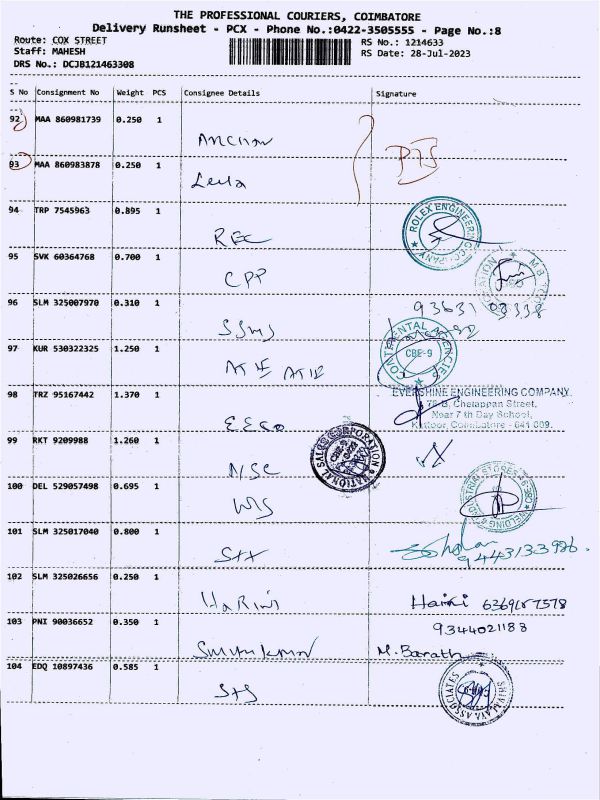 THE PROFESSIONAL COURIERS, COIMBATORE
Delivery Runsheet - PCX - Phone No.:0422-3505555 - Page No.:8
Route: COX STREET
RS No.: 1214633
Staff: MAHESH
RS Date: 28-Jul-2023
DRS No.: DCJB121463308
S No Consignment No Weight PCS Consignee Details Signature
92 MAA 860981739 0.250 1
93 MAA 860983878 0.250 1
94 TRP 7545963 0.895 1 REC
ROLEX ENGINEERING COMPANY
95 SVK 60364768 0.700 1 CPP
96 SLM 325007970 0.310 1
CONTINENTAL AGENCIES
CBE-9
97 KUR 530322325 1.250 1
98 TRZ 95167442 1.370 1 EECO
EVERSHINE ENGINEERING COMPANY
Chetappan Street,
Near 7 th Day School,
Coimbatore - 641 009.
99 RKT 9209988 1.260 1 NSC
NATIONAL SALES CORPORATION
100 DEL 529057498 0.695 1 WIS
WELDING & INDUSTRIAL STORES
101 SLM 325017040 0.800 1
102 SLM 325026656 0.250 1 HARINI Harini
103 PNI 90036652 0.350 1
9344021188
M. Barath
104 EDQ 10897436 0.585 1
SHIVALAYA ASSOCIATES